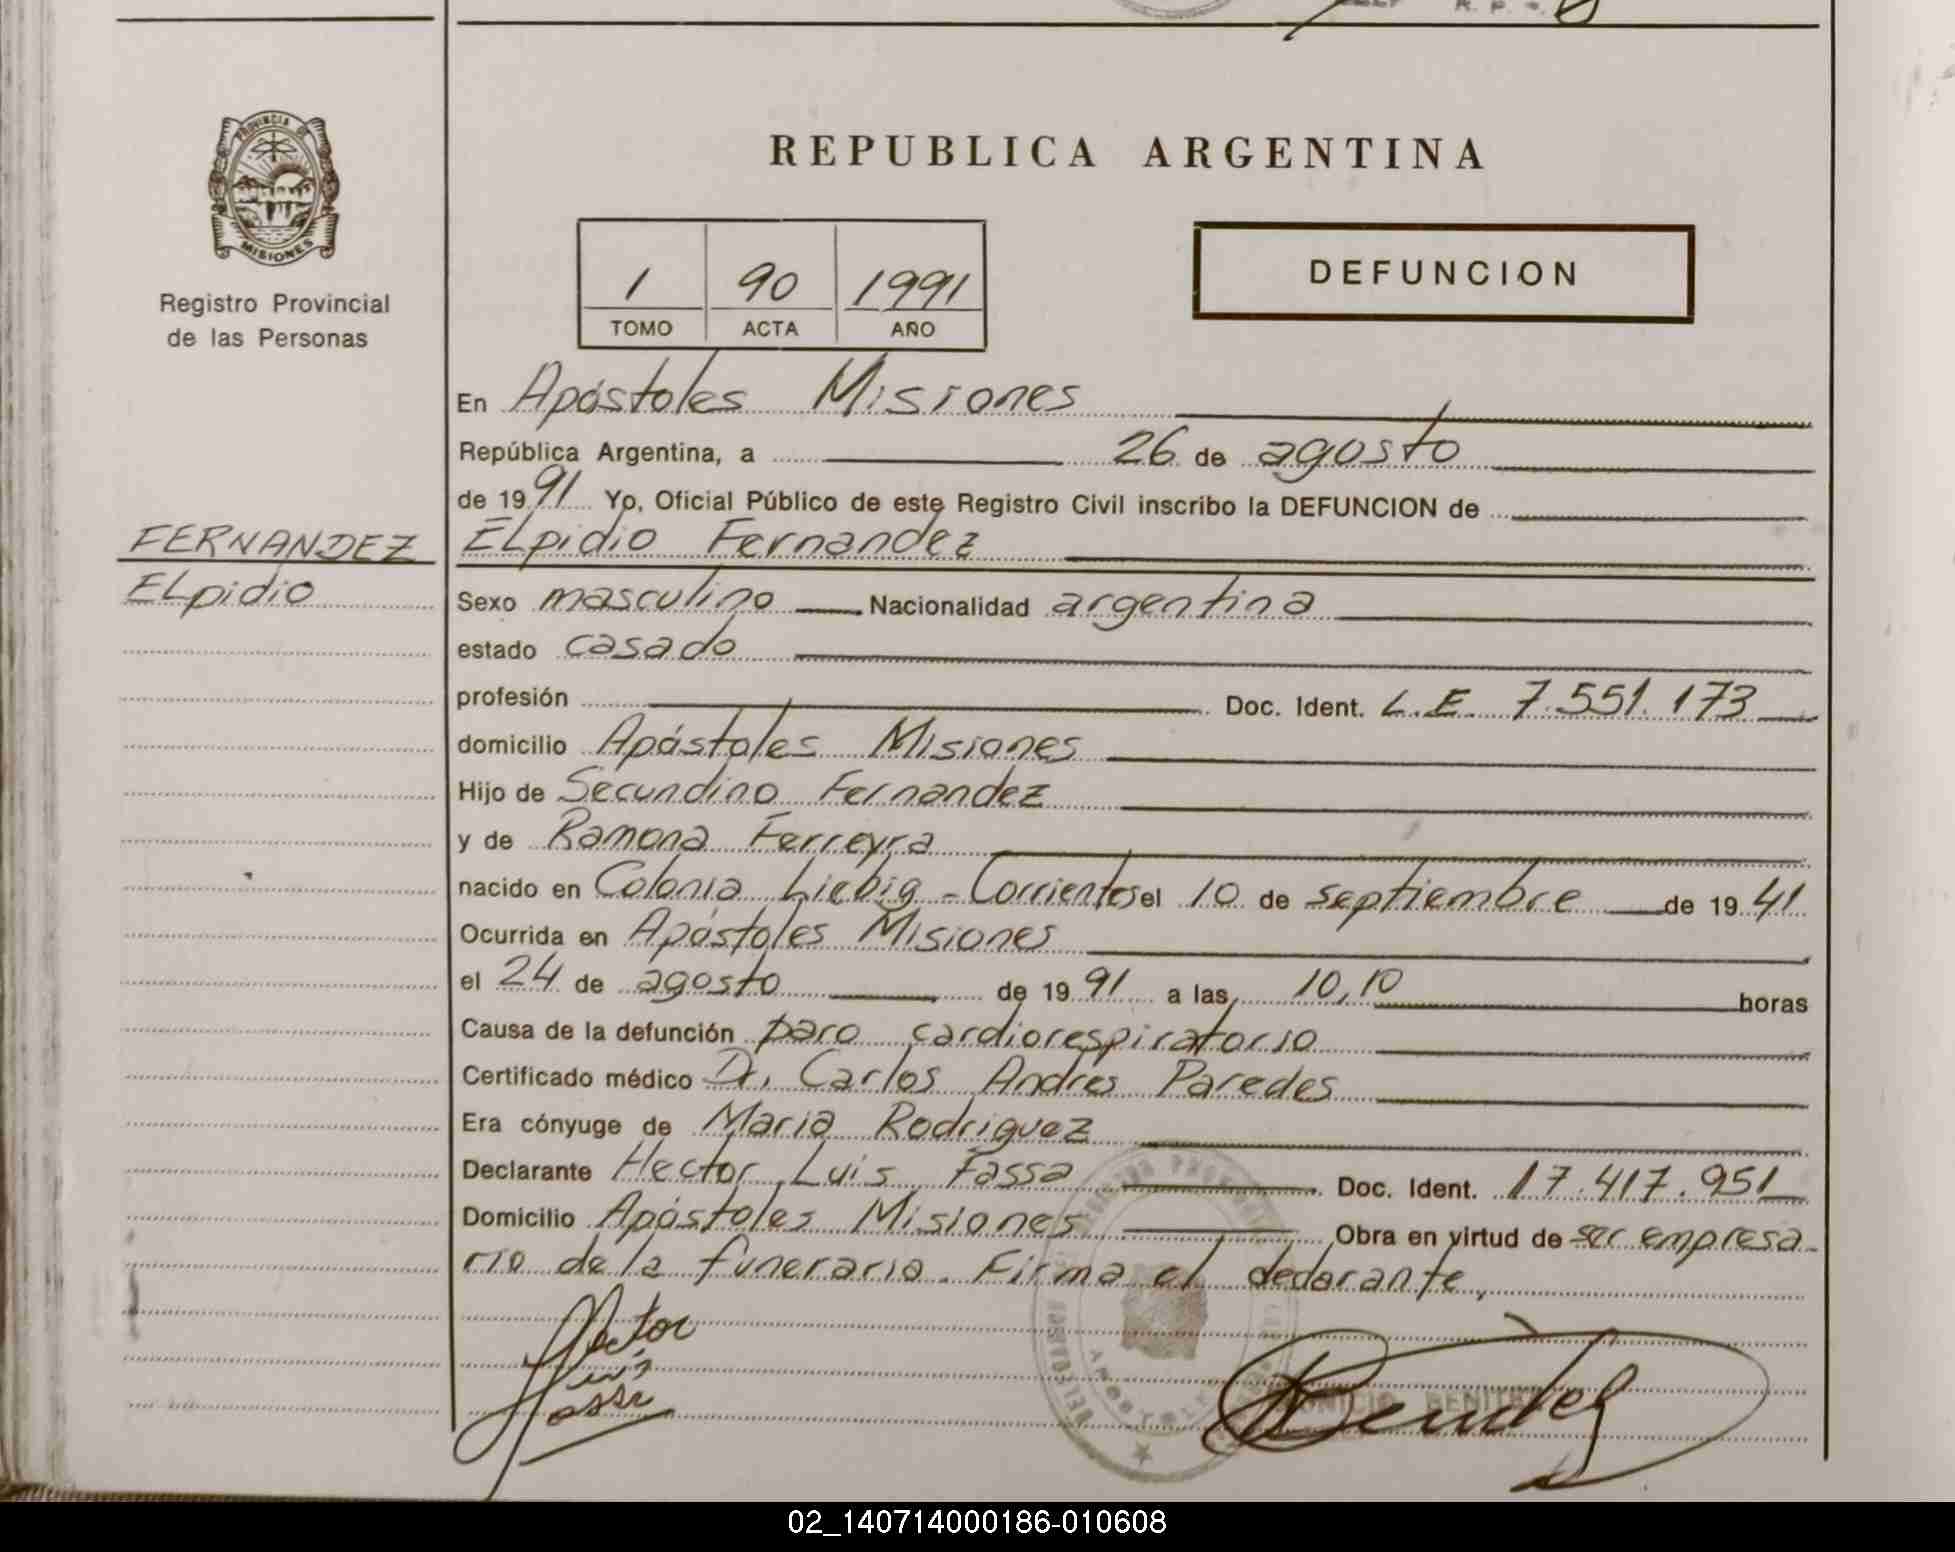 R. P.
PROVINCIA DE
MISIONES
Registro Provincial
de las Personas
REPUBLICA ARGENTINA
1 90 1991
TOMO ACTA AÑO
DEFUNCION
En Apóstoles Misiones
República Argentina, a 26 de agosto
de 1991 Yo, Oficial Público de este Registro Civil inscribo la DEFUNCION de
FERNANDEZ
ELpidio
ELpidio Fernandez
Sexo masculino Nacionalidad argentina
estado casado
profesión Doc. Ident. L.E. 7.551.173
domicilio Apóstoles Misiones
Hijo de Secundino Fernandez
y de Ramona Ferreyra
nacido en Colonia Liebig - Corrientes el 10 de septiembre de 1941
Ocurrida en Apóstoles Misiones
el 24 de agosto de 1991 a las 10,10 horas
Causa de la defunción paro cardiorespiratorio
Certificado médico Dr. Carlos Andres Paredes
Era cónyuge de Maria Rodriguez
Declarante Hector Luis Fassa Doc. Ident. 17.417.951
Domicilio Apóstoles Misiones Obra en virtud de ser empresa-
rio de la funeraria. Firma el declarante,
Hector
Luis
BENITEZ
02_140714000186-010608